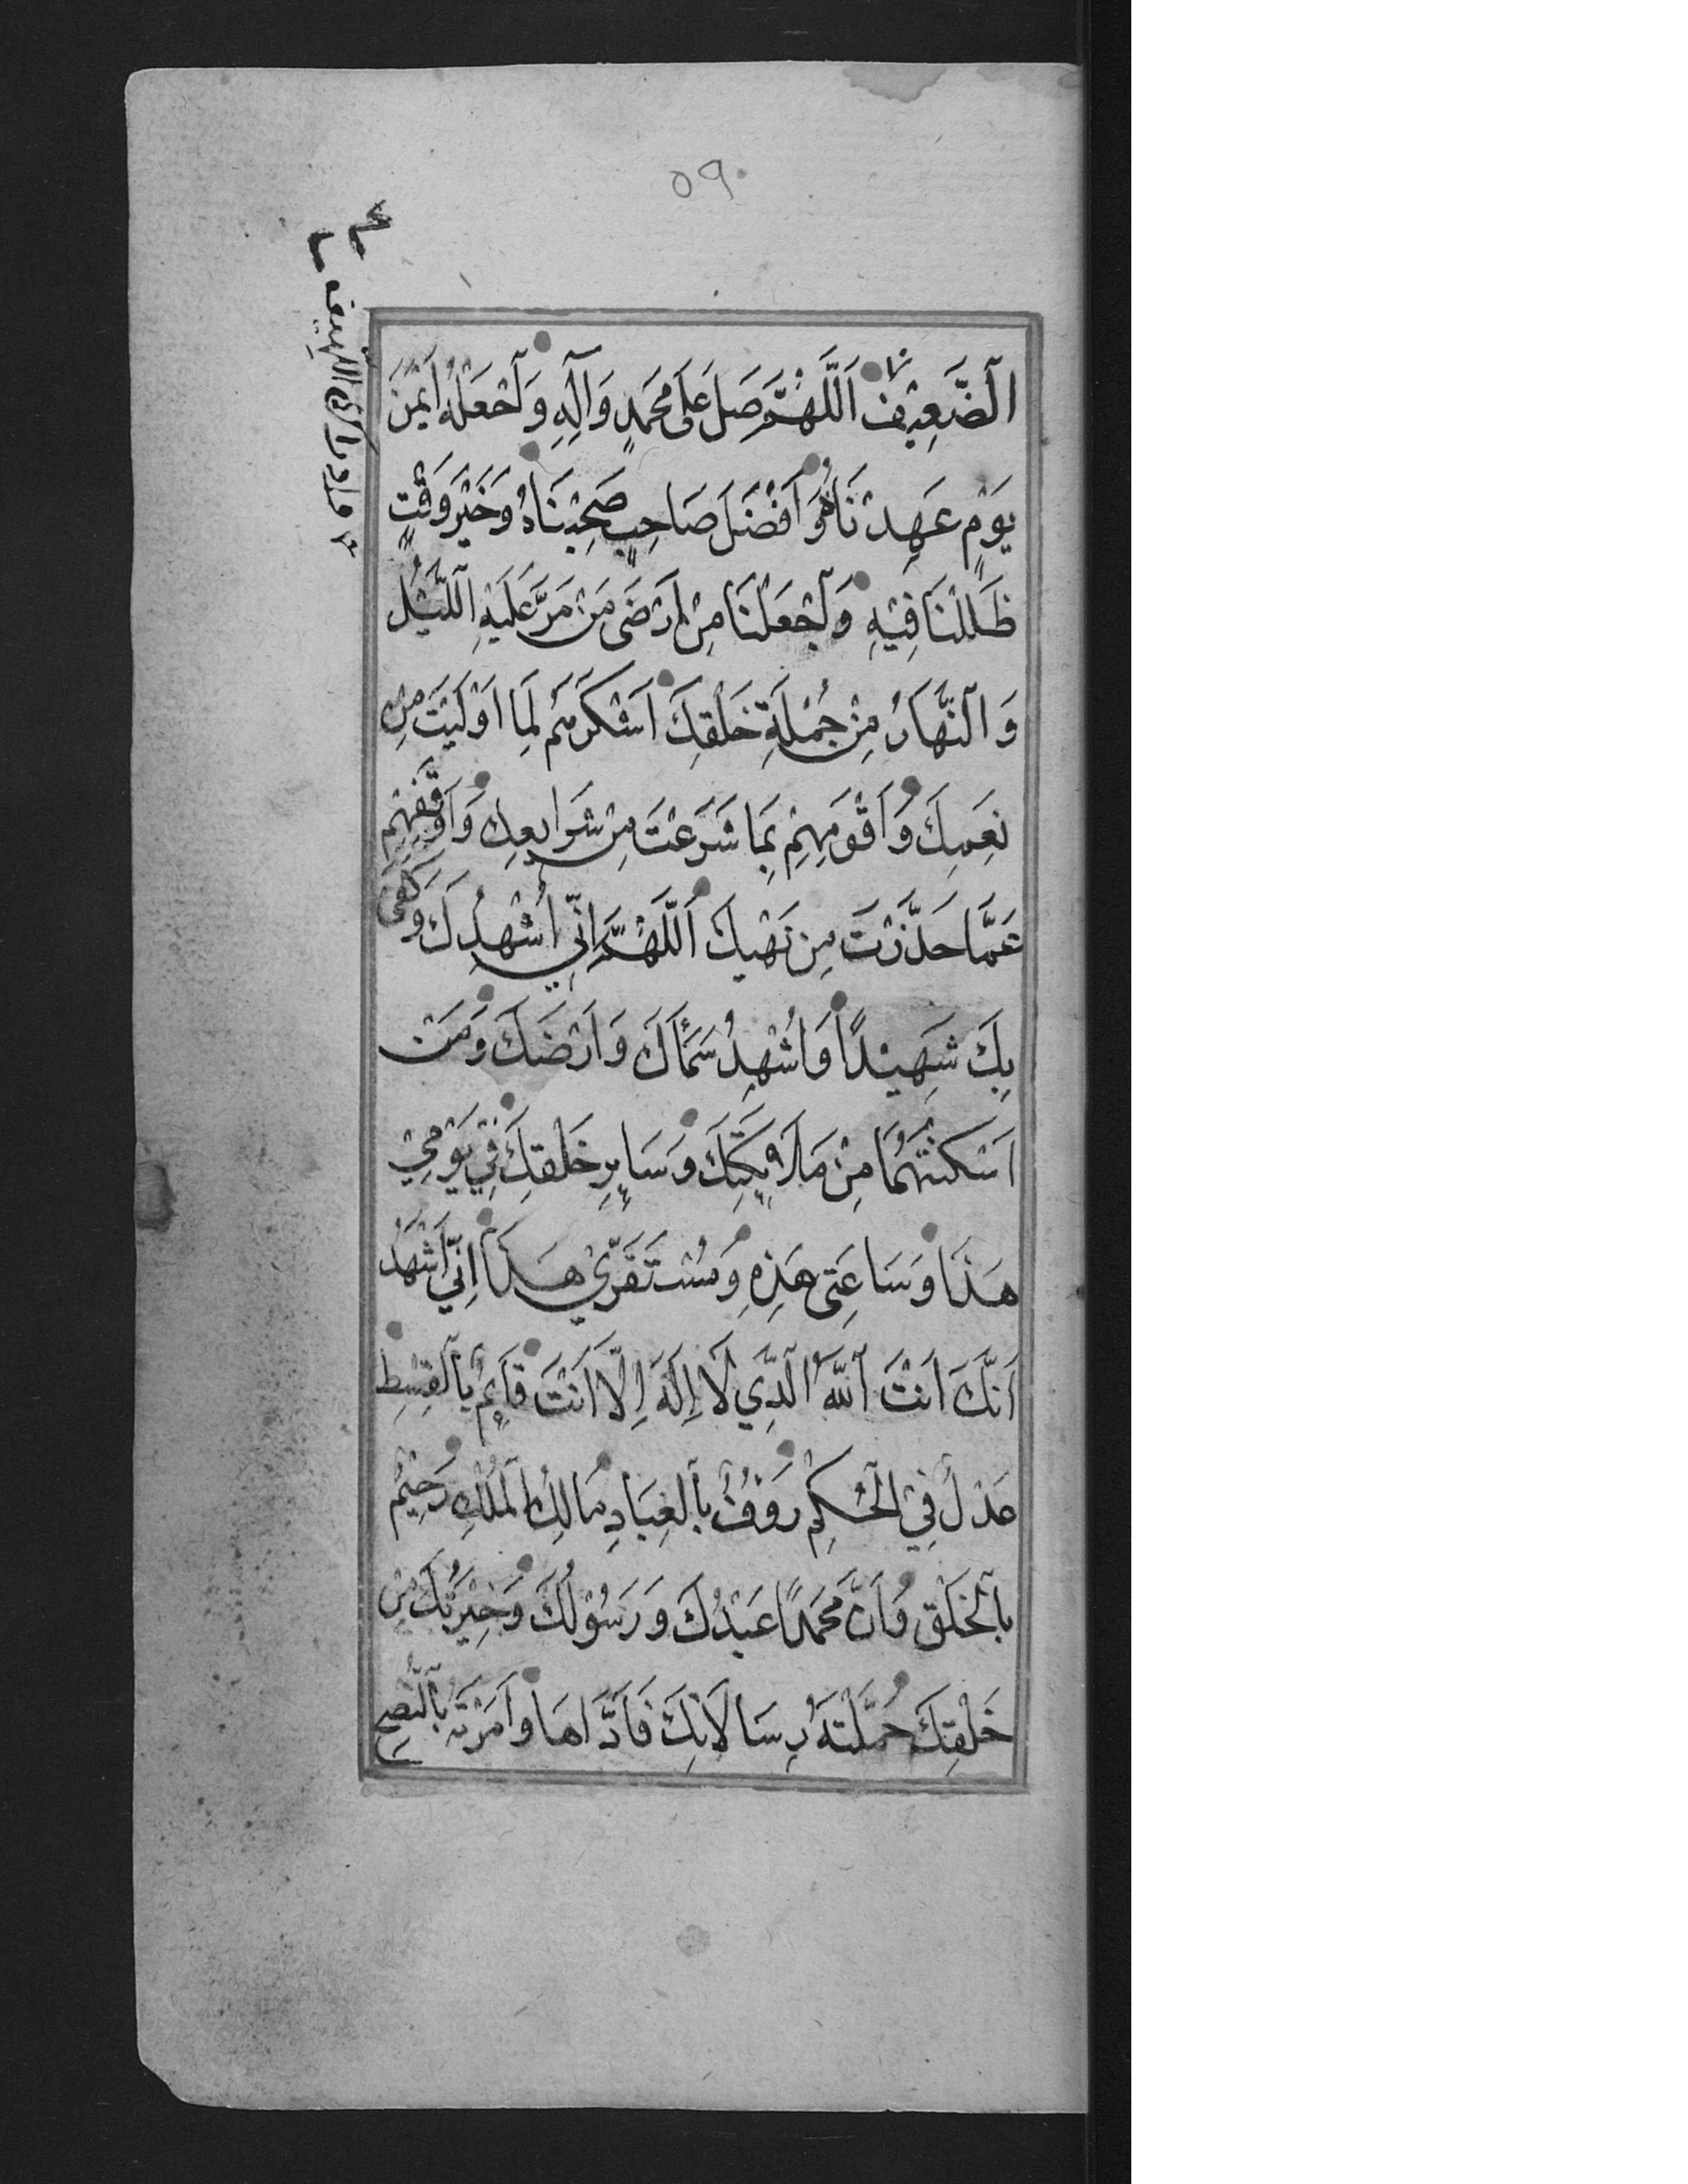 ٥٩
وادراك اللهيف
اَلضَّعِيْفِ اَللّٰهُمَّ صَلِّ عَلٰى مُحَمَّدٍ وَآلِهِ وَاَجْعَلْهُ اَيْمَنَ
يَوْمٍ عَهِدْنَاهُ وَاَفْضَلَ صَاحِبٍ صَحِبْنَاهُ وَخَيْرَ وَقْتٍ
ظَلَلْنَا فِيْهِ وَاَجْعَلْنَا مِنْ اَرْضَى مَنْ مَرَّ عَلَيْهِ اللَّيْلُ
وَالنَّهَارُ مِنْ جُمْلَةِ خَلْقِكَ اَشْكَرَهُمْ لِمَا اَوْلَيْتَ مِنْ
نِعَمِكَ وَاَقْوَمِهِمْ بِمَا شَرَعْتَ مِنْ شَرَايِعِكَ وَاَوْقَفِهِمْ
عَمَّا حَذَّرْتَ مِنْ نَهْيِكَ اَللّٰهُمَّ اِنِّي اُشْهِدُكَ وَكَفَى
بِكَ شَهِيْدًا وَاُشْهِدُ سَمَاءَكَ وَاَرْضَكَ وَمَنْ
اَسْكَنْتَهُمَا مِنْ مَلَائِكَتِكَ وَسَايِرِ خَلْقِكَ فِيْ يَوْمِيْ
هَذَا وَسَاعَتِى هَذِهِ وَمُسْتَقَرِّيْ هَذَا اِنِّي اَشْهَدُ
اَنَّكَ اَنْتَ اَللّٰهُ الَّذِي لَا اِلَهَ اِلَّا اَنْتَ قَائِمٌ بِالْقِسْطِ
عَدْلٌ فِي الْحُكْمِ رَؤُفٌ بِالْعِبَادِ مَالِكُ الْمُلْكِ رَحِيْمٌ
بِالْخَلْقِ وَاَنَّ مُحَمَّدًا عَبْدُكَ وَرَسُوْلُكَ وَخِيَرَتُكَ مِنْ
خَلْقِكَ حَمَّلْتَهُ رِسَالَاتِكَ فَاَدَّاهَا وَاَمَرْتَهُ بِالنُّصْحِ